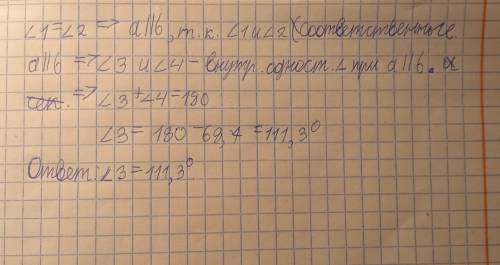 ∠1=∠2 => a||b, т.к. ∠1 и ∠2 (соответственные
a||b => ∠3 и ∠4 - внутр. одност. ∠ при a||b. и
сек. => ∠3+∠4=180
∠3= 180-68,7=111,3°
Ответ: ∠3=111,3°